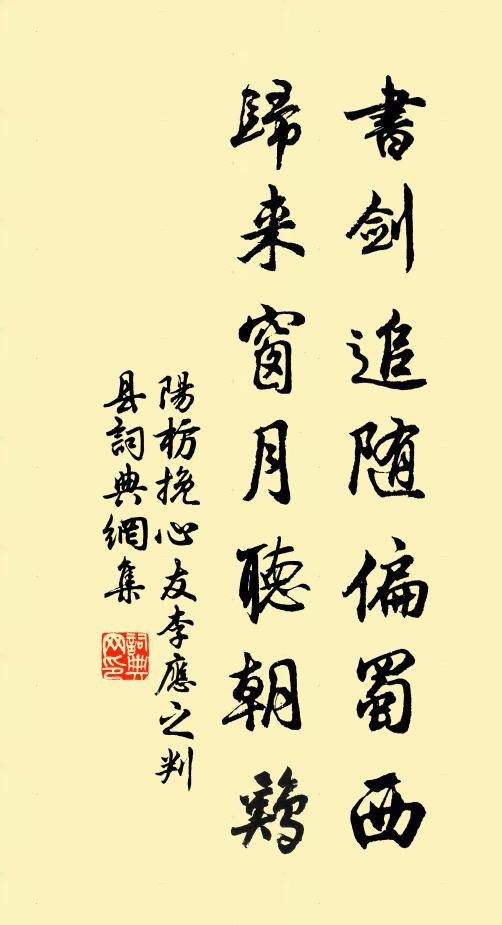 書剑追随偏蜀西
歸来窗月聽朝鷄
陽枋挽心友李應之判
县詞典網集
詞典网印